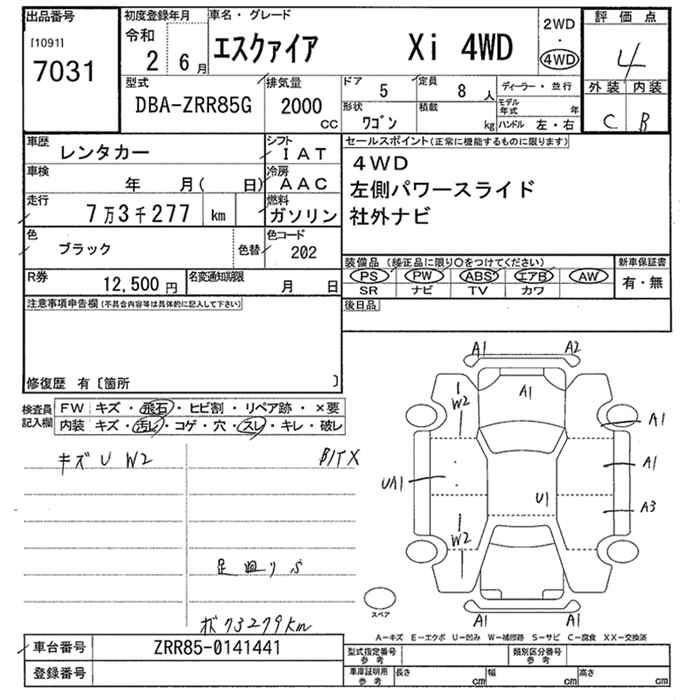 出品番号 初度登録年月 車名・グレード 2WD 評価点
[1091] 令和 ・
7031 2 6月 エスクァイア Xi 4WD 4WD 4
型式 排気量 ドア 5 定員 8人 ディーラー・並行 外装 内装
DBA-ZRR85G 2000 CC 形状 ワゴン 積載 kg モデル年式 年 C B
ハンドル 左・右
車歴 レンタカー シフト IAT セールスポイント(正常に機能するものに限ります)
車検 年 月( 日) 冷房 AAC 4WD
走行 7万3千277 km 燃料 ガソリン 左側パワースライド
社外ナビ
色 ブラック 色替 色コード 202
装備品(純正品に限り○をつけてください) 新車保証書
R券 12,500円 名変通知期限 月 日 PS PW ABS エアB AW 有・無
SR ナビ TV カワ
注意事項申告欄(不具合内容等は具体的に記入して下さい) 後日品
修復歴 有〔箇所 〕
検査員記入欄 FW キズ・飛石・ヒビ割・リペア跡・×要
内装 キズ・汚レ・コゲ・穴・スレ・キレ・破レ
キズ U W2
足廻り
73279km
A1 A2
A1
W2 A1
UA1 A1
U1 A3
W2
A1 A1
スペア
A-キズ E-エクボ U-凹み W-補修跡 S-サビ C-腐食 XX-交換済
車台番号 ZRR85-0141441 型式指定番号 参考 類別区分番号 参考
登録番号 車庫証明用 参考 長さ cm 幅 cm 高さ cm